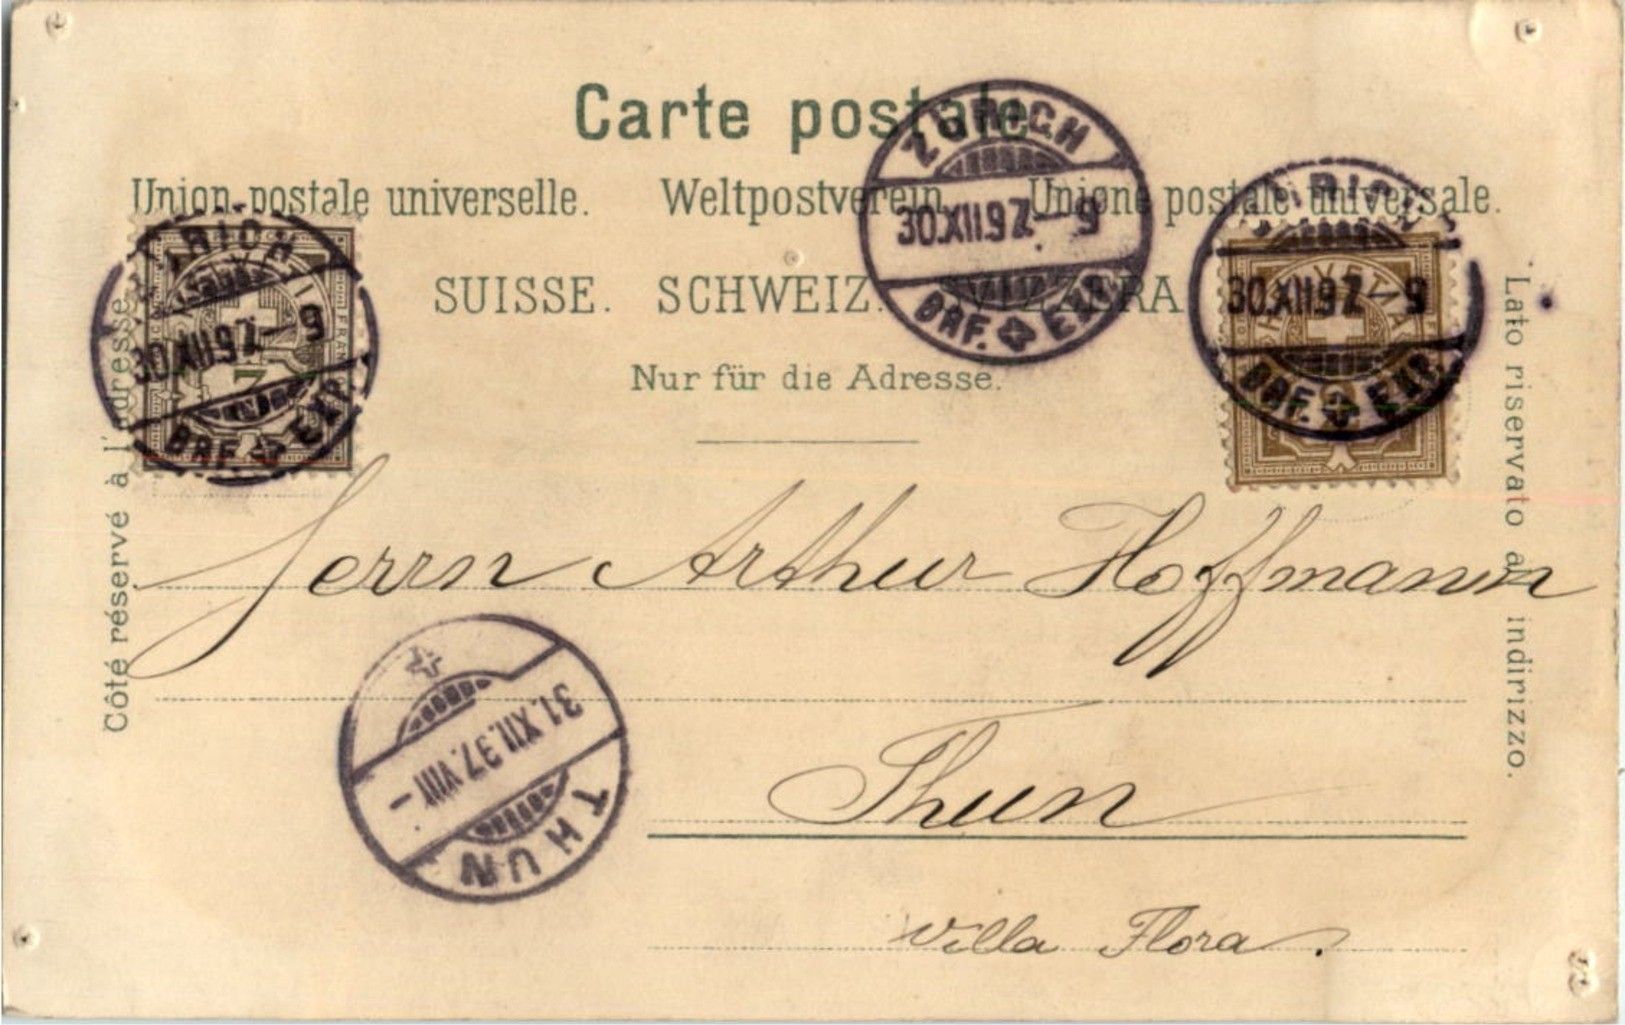 Carte postale
Union postale universelle. Weltpostverein. Unione postale universale.
SUISSE. SCHWEIZ. SVIZZERA
Nur für die Adresse.
ZÜRICH
30.XII.97.–9
BRF. EXP.
RICH
30.XII.97.–9
BRF. EXP.
FRANCO
2
RICH
30.XII.97. 9
BRF. EXP.
HELVETIA
Côté réservé à l'adresse.
Lato riservato all indirizzo.
Herrn Arthur Hoffmann
Thun
Villa Flora.
THUN
31.XII.97.VIII–